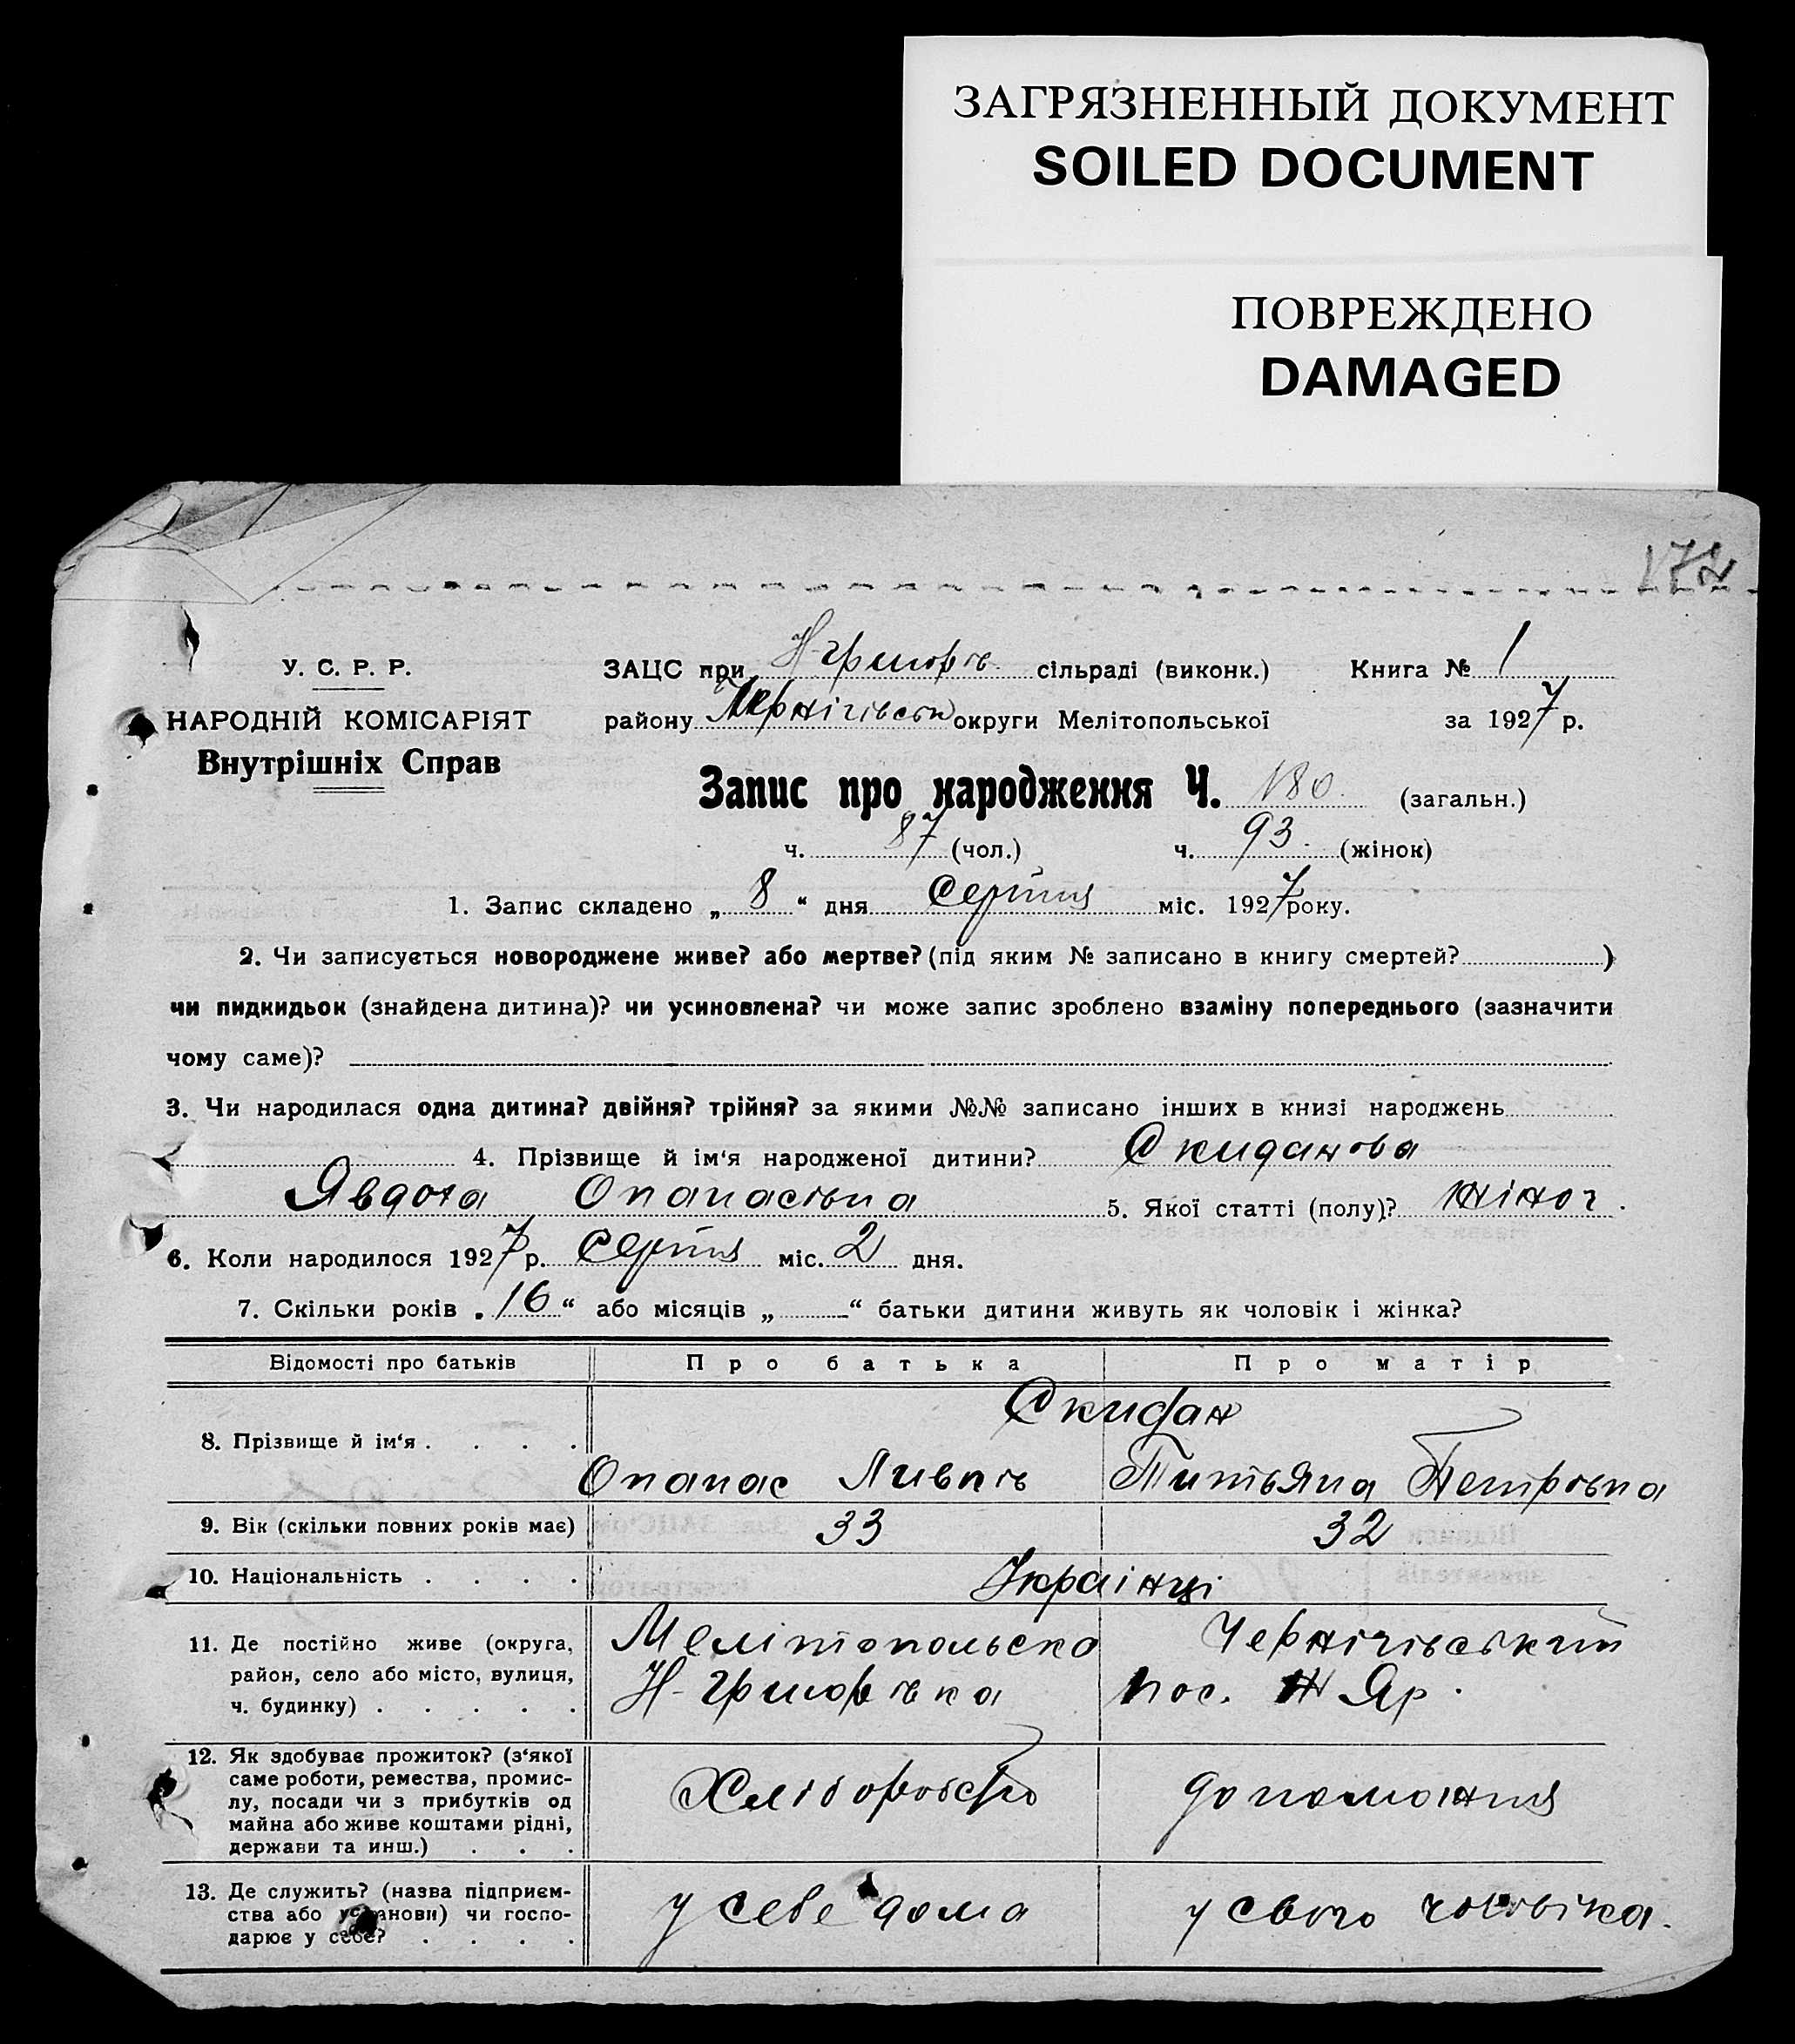 ЗАГРЯЗНЕННЫЙ ДОКУМЕНТ
SOILED DOCUMENT
ПОВРЕЖДЕНО
DAMAGED
172
У. С. Р. Р.
НАРОДНІЙ КОМІСАРІЯТ
Внутрішніх Справ
ЗАЦС при Н-Григорів. сільраді (виконк.) Книга № 1
району Чернігівськ округи Мелітопольської за 1927 р.
Запис про народження Ч. 180. (загальн.)
ч. 87 (чол.) ч. 93. (жінок)
1. Запис складено „ 8 “ дня Серпня міс. 1927 року.
2. Чи записується новороджене живе? або мертве? (під яким № записано в книгу смертей? )
чи пидкидьок (знайдена дитина)? чи усиновлена? чи може запис зроблено взаміну попереднього (зазначити
чому саме)?
3. Чи народилася одна дитина? двійня? трійня? за якими №№ записано інших в книзі народжень
4. Прізвище й ім‘я народженої дитини? Скиданова
Явдоха Опанасівна 5. Якої статті (полу)? жіноч.
6. Коли народилося 1927 р. Серпня міс. 2 дня.
7. Скільки років „ 16 “ або місяців „ “ батьки дитини живуть як чоловік і жінка?
Відомості про батьків Про батька Про матір
Скидан
8. Прізвище й ім‘я . . . .
Опанас Титьяна Петрівна
9. Вік (скільки повних років має) 33 32
10. Національність . . . . Українці
11. Де постійно живе (округа, Мелітопольска Чернігівський
район, село або місто, вулиця, Н-Григорівка пос. Яр.
ч. будинку) . . . . .
12. Як здобуває прожиток? (з‘якої
саме роботи, ремества, промис-
лу, посади чи з прибутків од Хліборобство допоможня
майна або живе коштами рідні,
держави та инш.) . . .
13. Де служить? (назва підприєм-
ства або установи) чи госпо- у себе дома у свого чоловіка.
дарює у себе? . . . .